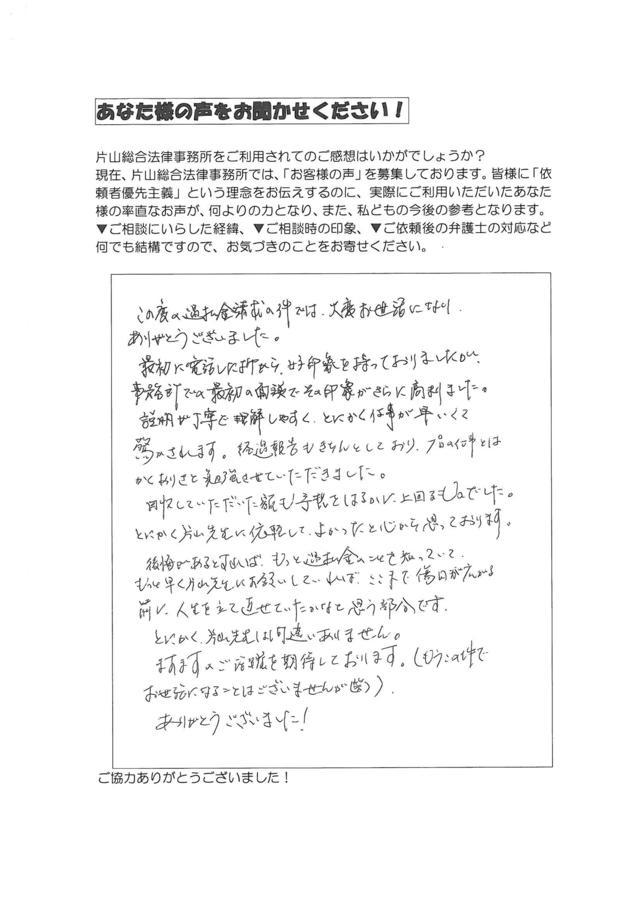 あなた様の声をお聞かせください！
片山総合法律事務所をご利用されてのご感想はいかがでしょうか？
現在、片山総合法律事務所では、「お客様の声」を募集しております。皆様に「依
頼者優先主義」という理念をお伝えするのに、実際にご利用いただいたあなた
様の率直なお声が、何よりの力となり、また、私どもの今後の参考となります。
▼ご相談にいらした経緯、▼ご相談時の印象、▼ご依頼後の弁護士の対応など
何でも結構ですので、お気づきのことをお寄せください。
この度の過払金請求の件では、大変お世話になり
ありがとうございました。
最初に電話した時から、好印象を持っておりましたが、
事務所での最初の面談でその印象がさらに高まりました。
説明が丁寧で理解しやすく、とにかく仕事が早いくて
驚かされます。経過報告もきちんとしており、プロの仕事とは
かくありきと勉強させていただきました。
回収していただいた額も予想をはるかに上回るものでした。
とにかく片山先生に依頼して、よかったと心から思っております。
後悔があるとすれば、もっと過払金のことを知っていて、
もっと早く片山先生にお願いしていれば、ここまで傷口が広がる
前に、人生を立て直せていたかなと思う部分です。
とにかく、片山先生は間違いありません。
ますますのご活躍を期待しております。（もうこの件で
お世話になることはございませんが（笑））
ありがとうございました！
ご協力ありがとうございました！